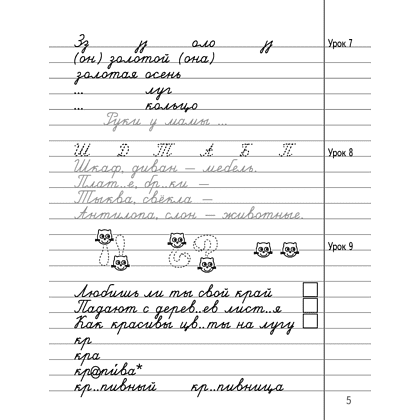 Зз уу оло уу Урок 7
(он) золотой (она)
золотая осень
... луг
... кольцо
Руки у мамы ...
Ш Д Т А Б П Урок 8
Шкаф, диван — мебель.
Плат..е, бр..ки —
Тыква, свёкла —
Антилопа, слон — животные.
Урок 9
Любишь ли ты свой край
Падают с дерев..ев лист..я
Как красивы цв..ты на лугу
кр
кра
кр@пи́ва*
кр..пивный кр..пивница
5